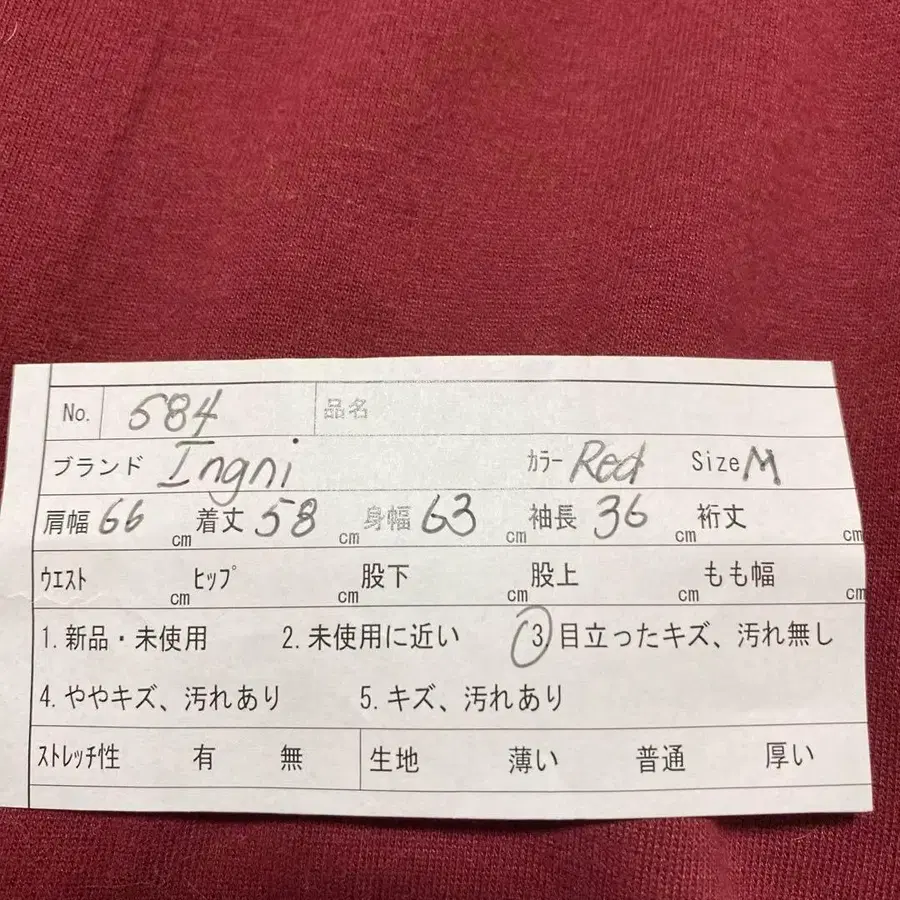 No. 584 品名
ブランド Ingni カラー Red Size M
肩幅 66 cm 着丈 58 cm 身幅 63 cm 袖長 36 cm 裄丈 cm
ウエスト cm ヒップ cm 股下 cm 股上 cm もも幅 cm
1. 新品・未使用 2. 未使用に近い 3 目立ったキズ、汚れ無し
4. ややキズ、汚れあり 5. キズ、汚れあり
ストレッチ性 有 無 生地 薄い 普通 厚い